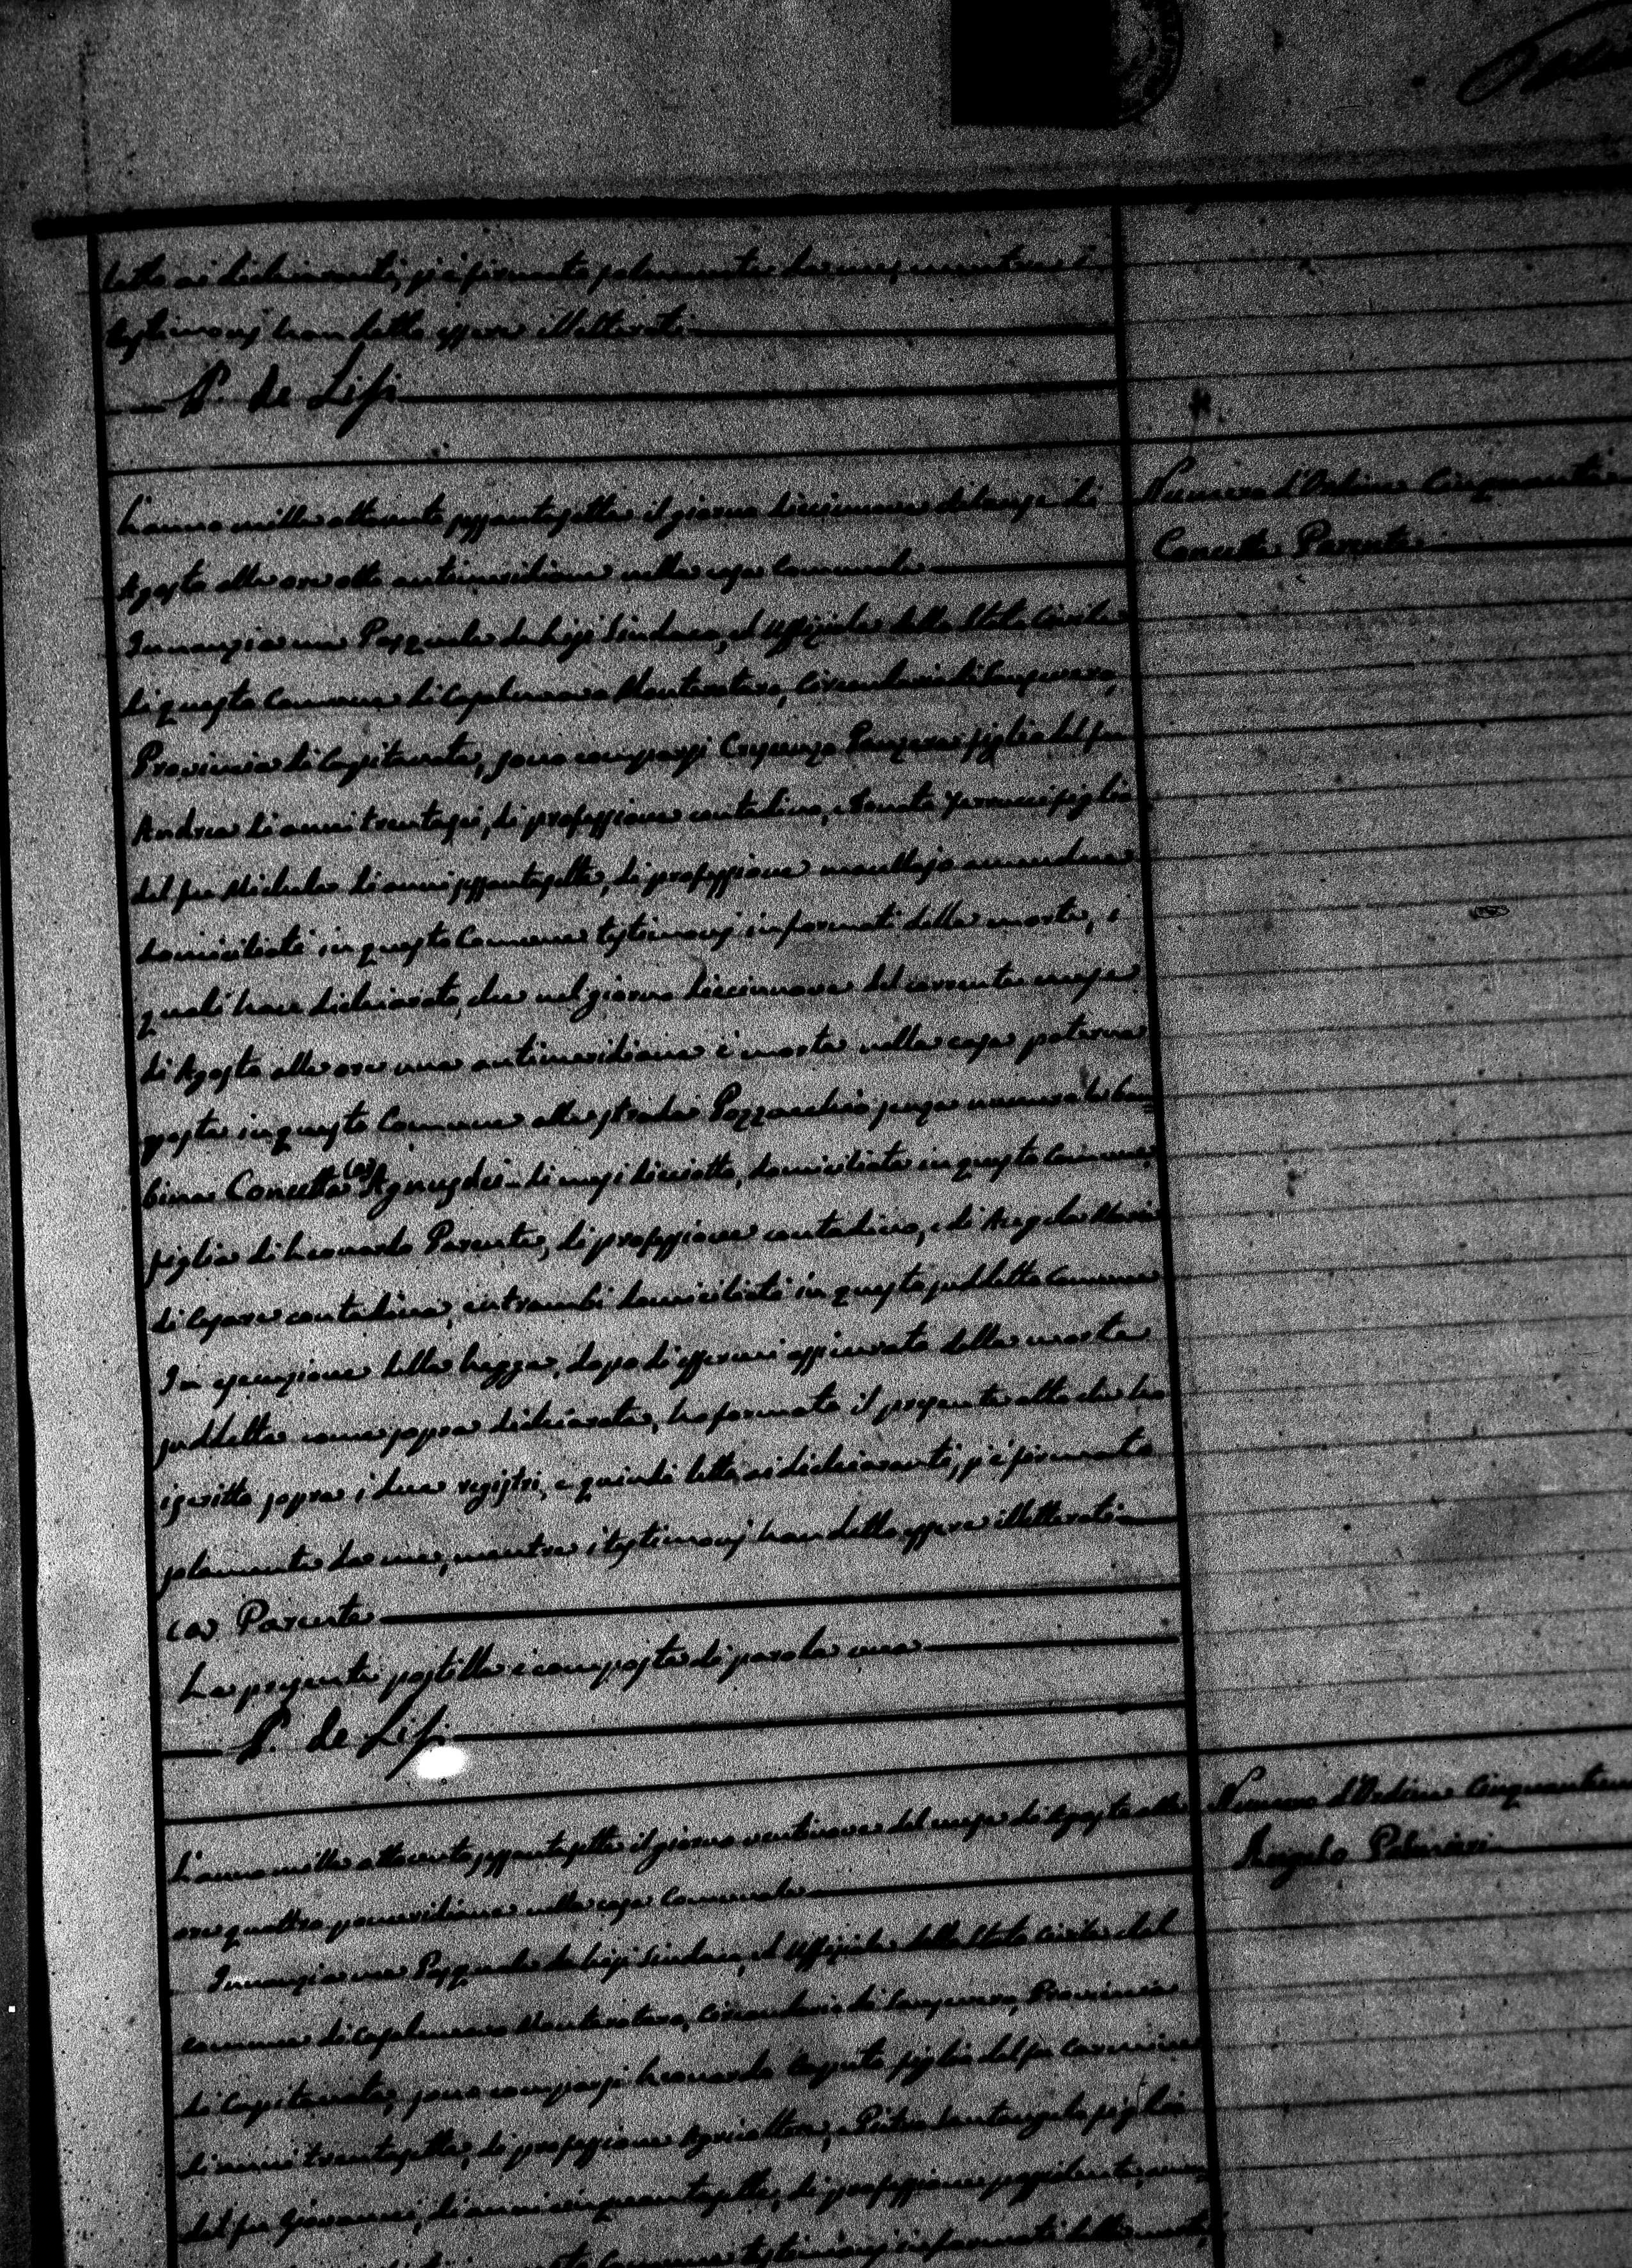 letto ai dichiaranti, si è firmato solamente da me, mentre i
testimonj han detto essere illetterati
P. de Lisi
L'anno mille ottocento sessantasette il giorno diciannove del mese di
Agosto alle ore otto antimeridiane nella casa Comunale
Numero d'Ordine Cinquanta
Concetta Parente
Innanzi a me Pasquale de Lisi Sindaco, ed Uffiziale dello Stato Civile
di questo Comune di Casalnuovo Monterotaro, Circondario di Sansevero,
Provincia di Capitanata, sono comparsi Crescenzo Panzera figlio del fu
Andrea di anni trentasei, di professione contadino, e Donato Ferrucci figlio
del fu Michele di anni sessantasette, di professione mulattiere amendue
domiciliati in questo Comune testimonj informati della morte, i
quali han dichiarato, che nel giorno diciannove del corrente mese
di Agosto alle ore una antimeridiane è morta nella casa paterna
posta in questo Comune alla strada Pozzacchio senza numero la bam=
bina Concetta (a) Agnusdei di mesi diciotto, domiciliata in questo Comune,
figlia di Leonardo Parente, di professione contadino, e di Angela Maria
di Cesare contadina, entrambi domiciliati in questo suddetto Comune
In esecuzione della legge, dopo di essermi assicurato della morte
suddetta come sopra dichiarata, ho formato il presente atto che ho
iscritto sopra i due registri, e quindi letto ai dichiaranti, si è firmato
solamente da me, mentre i testimonj han detto essere illetterati
(a) Parente
La presente postilla è composta di parola una
P. de Lisi
L'anno mille ottocento sessantasette il giorno ventinove del mese di Agosto alle
ore quattro pomeridiane nella casa Comunale
Numero d'Ordine Cinquantuno
Angelo Palmieri
Innanzi a me Pasquale de Lisi Sindaco, ed Uffiziale dello Stato Civile del
comune di Casalnuovo Monterotaro, Circondario di Sansevero, Provincia
di Capitanata, sono comparsi Leonardo figlio del fu Carmine
di anni trentasette, di professione Agricoltore, e Pietro Santangelo figlio
del fu Giovanni, di anni cinquantasette, di professione possidente,
Comune testimonj informati della morte,